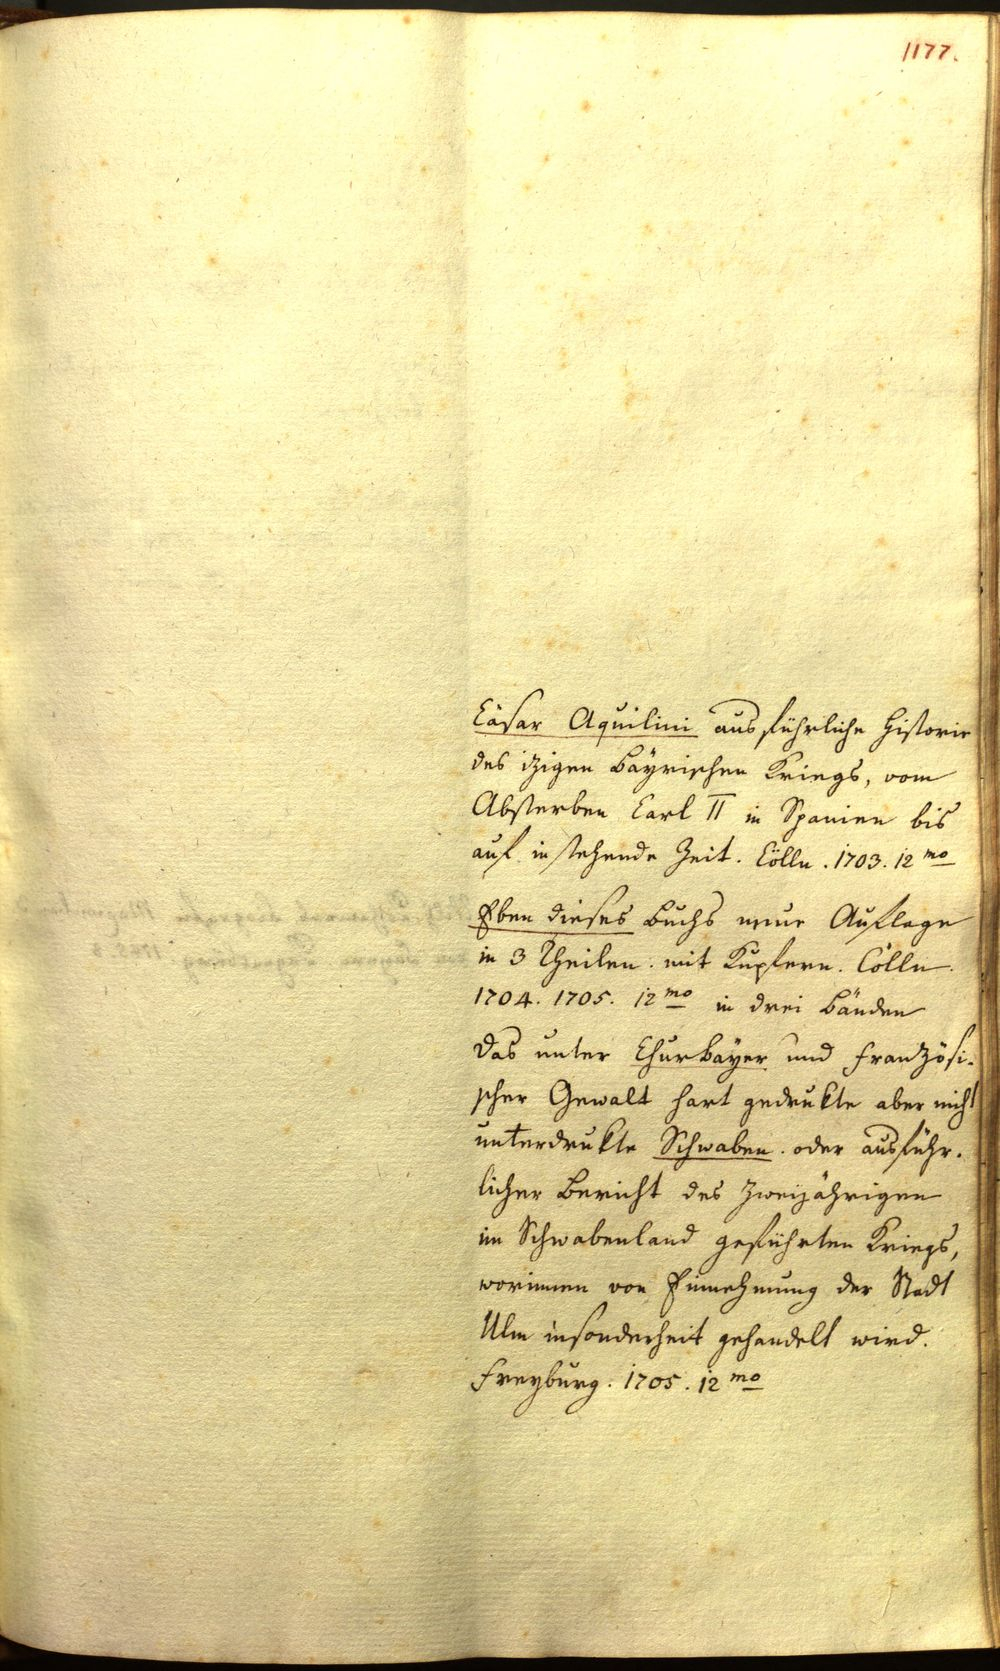 1177.
Cäsar Aquilini ausführliche Historie
des izigen Bäyrischen Kriegs, vom
Absterben Carl II in Spanien bis
auf instehende Zeit. Cölln. 1703. 12mo
Eben dieses Buchs neue Auflage
in 3 Theilen. mit Kupfern. Cölln.
1704. 1705. 12mo in drei Bänden
Das unter Churbäyer. und Französi-
scher Gewalt hart gedrukte aber nicht
unterdrukte Schwaben. oder ausführ-
licher Bericht des Zweijährigen
im Schwabenland geführten Kriegs,
worinnen von Einnehmung der Stadt
Ulm insonderheit gehandelt wird.
Freyburg. 1705. 12mo